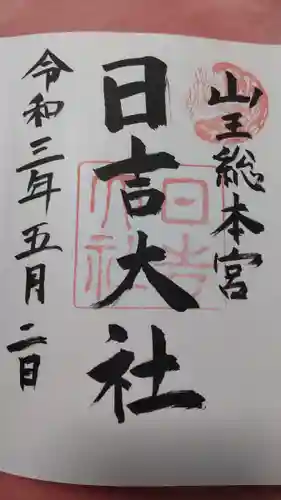 山王総本宮
日吉大社
令和三年五月二日
日吉大社